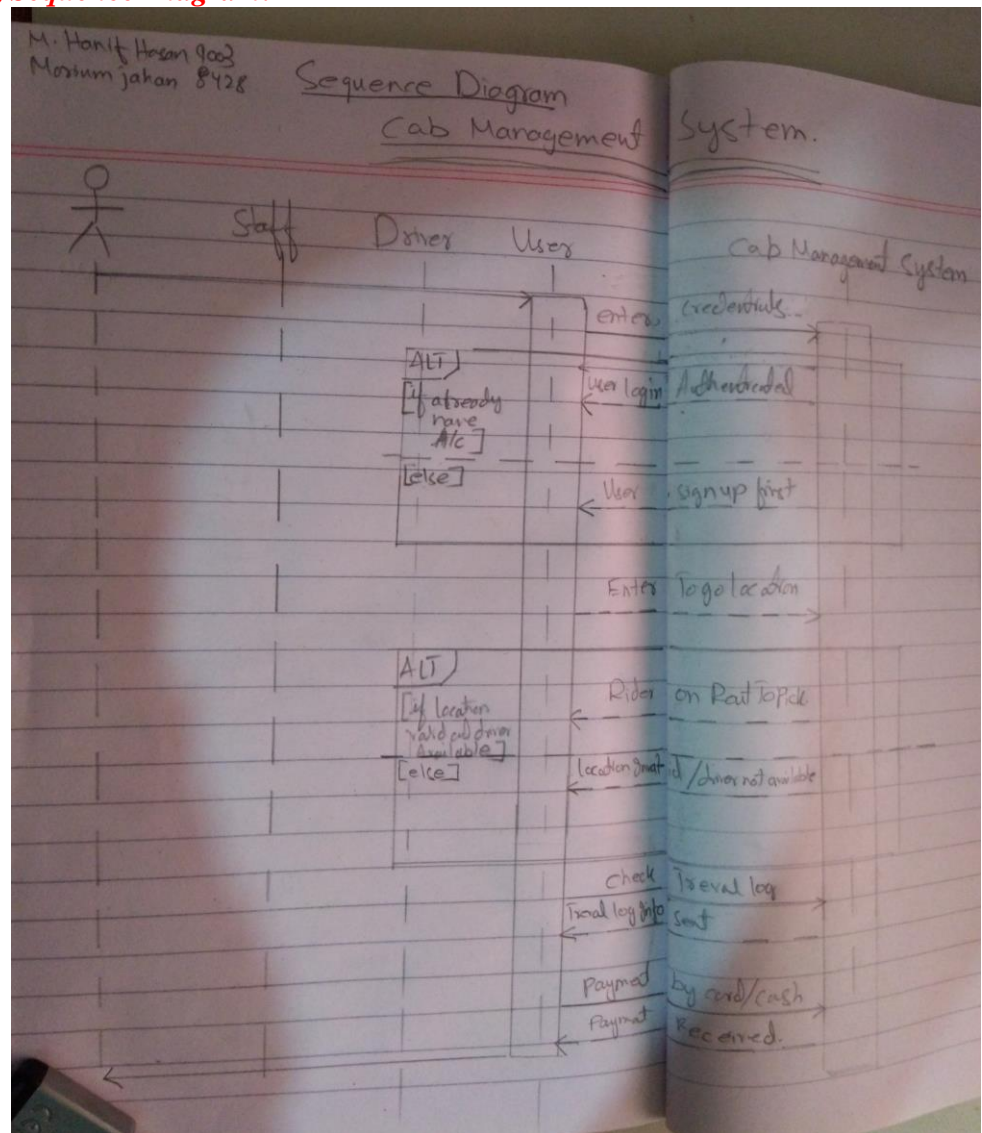 Sequence Diagram
M. Hanif Hasan 9003
jahan 8428
Sequence Diagram
Cab Management System.
Staff
Driver
User
Cab Management System
enter credentials
ALT
[if already
have
A/c]
User login Authenticated
[else]
User signup first
Enter To go location
ALT
[if location
valid driver
Available]
Rider on
[else]
location / driver not available
Check Treval log
log Info sent
Payment by card/cash
Payment Received.